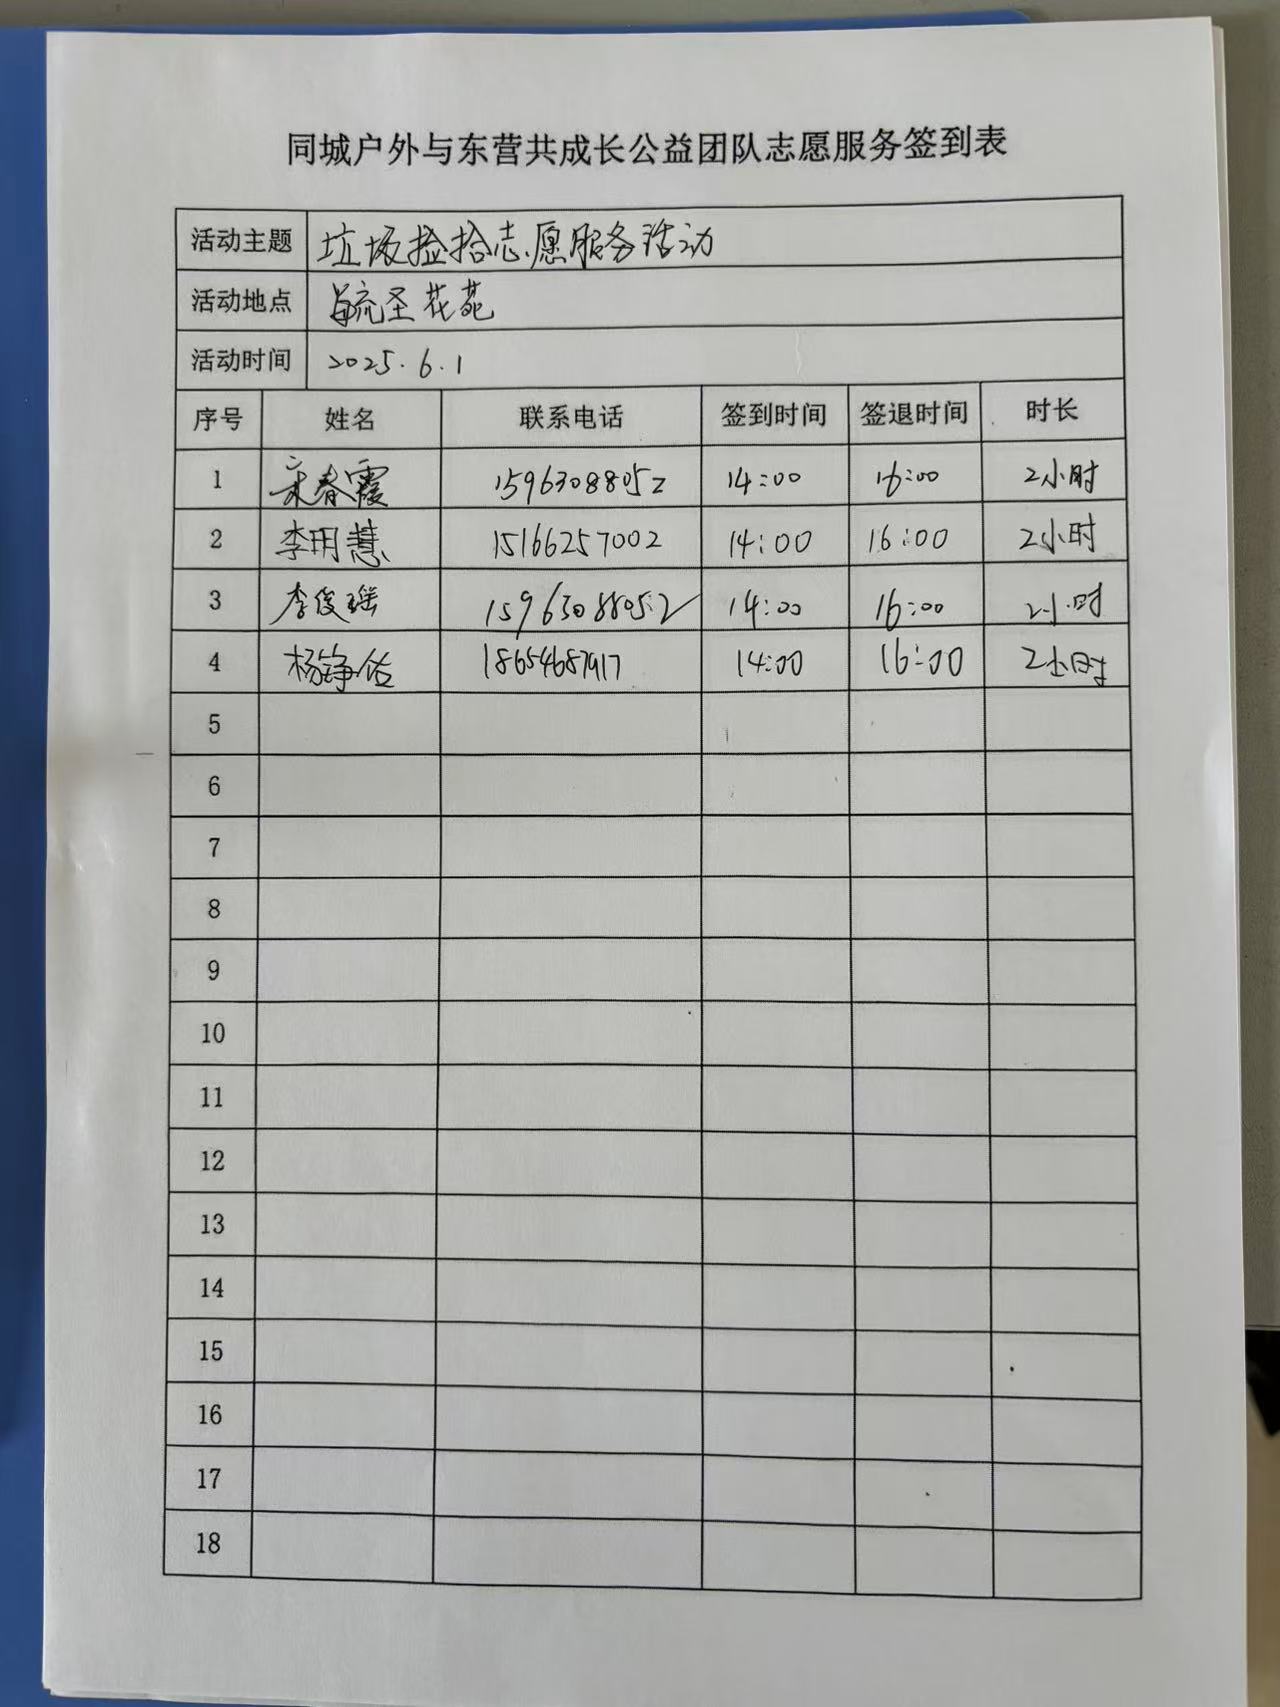 同城户外与东营共成长公益团队志愿服务签到表
活动主题 垃圾捡拾志愿服务活动
活动地点 毓圣花苑
活动时间 2025.6.1
序号 姓名 联系电话 签到时间 签退时间 时长
1 宋春霞 15963088052 14:00 16:00 2小时
2 李玥慧 15166257002 14:00 16:00 2小时
3 李俊瑶 15963088052 14:00 16:00 2小时
4 杨铮佑 18654687917 14:00 16:00 2小时
5
6
7
8
9
10
11
12
13
14
15
16
17
18